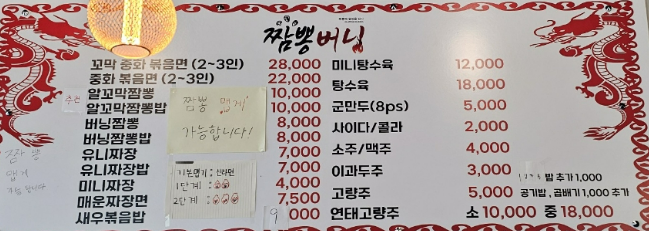 짬뽕버닝
꼬막 중화 볶음면 (2~3인) 28,000
중화 볶음면 (2~3인) 22,000
알꼬막짬뽕 10,000
알꼬막짬뽕밥 10,000
버닝짬뽕 8,000
버닝짬뽕밥 8,000
유니짜장 7,000
유니짜장밥 7,000
미니짜장 4,000
매운짜장면 7,500
새우볶음밥 9,000
추천
짬뽕 맵게
가능합니다!
기본맵기 : 신라면
1단계 :
2단계 :
짬뽕
맵게
가능합니다
미니탕수육 12,000
탕수육 18,000
군만두(8ps) 5,000
사이다/콜라 2,000
소주/맥주 4,000
이과두주 3,000
고량주 5,000
연태고량주 소 10,000 중 18,000
밥 추가 1,000
공기밥, 곱배기 1,000 추가